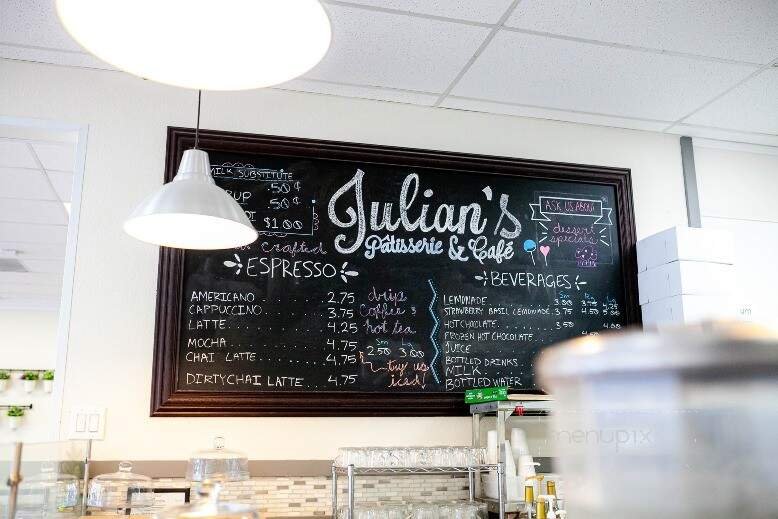 MILK SUBSTITUTE
.50¢
.50¢
$1.00
Crafted
ESPRESSO
AMERICANO 2.75
CAPPUCCINO 3.75
LATTE 4.25
MOCHA 4.75
CHAI LATTE 4.75
DIRTYCHAI LATTE 4.75
Julian's
Pâtisserie & Café
drip
Coffee &
hot tea
Sm
2.50 3.00
try us
iced!
ASK US ABOUT
dessert
specials
BEVERAGES
LEMONADE 3.50
STRAWBERRY BASIL LEMONADE 3.75 4.50
HOT CHOCOLATE 3.50
FROZEN HOT CHOCOLATE
JUICE
BOTTLED DRINKS
MILK
BOTTLED WATER
menupix